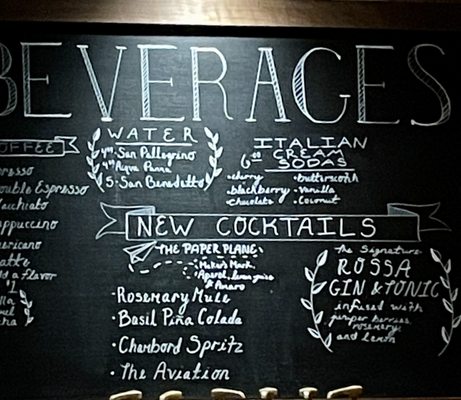 BEVERAGES
COFFEE
Double Espresso
Macchiato
Cappuccino
Americano
Latte
Add a Flavor
WATER
4⁰⁰ · San Pellegrino
4⁰⁰ Aqua Panna
5 · San Benedetto
ITALIAN
CREAM
6⁰⁰ SODAS
· cherry
· blackberry
· chocolate
· butterscotch
· Vanilla
· Coconut
NEW COCKTAILS
THE PAPER PLANE
Maker's Mark,
Aperol, lemon juice
& Amaro
· Rosemary Mule
· Basil Piña Colada
· Chambord Spritz
· The Aviation
The Signature
ROSSA
GIN & TONIC
infused with
juniper berries,
rosemary
and lemon